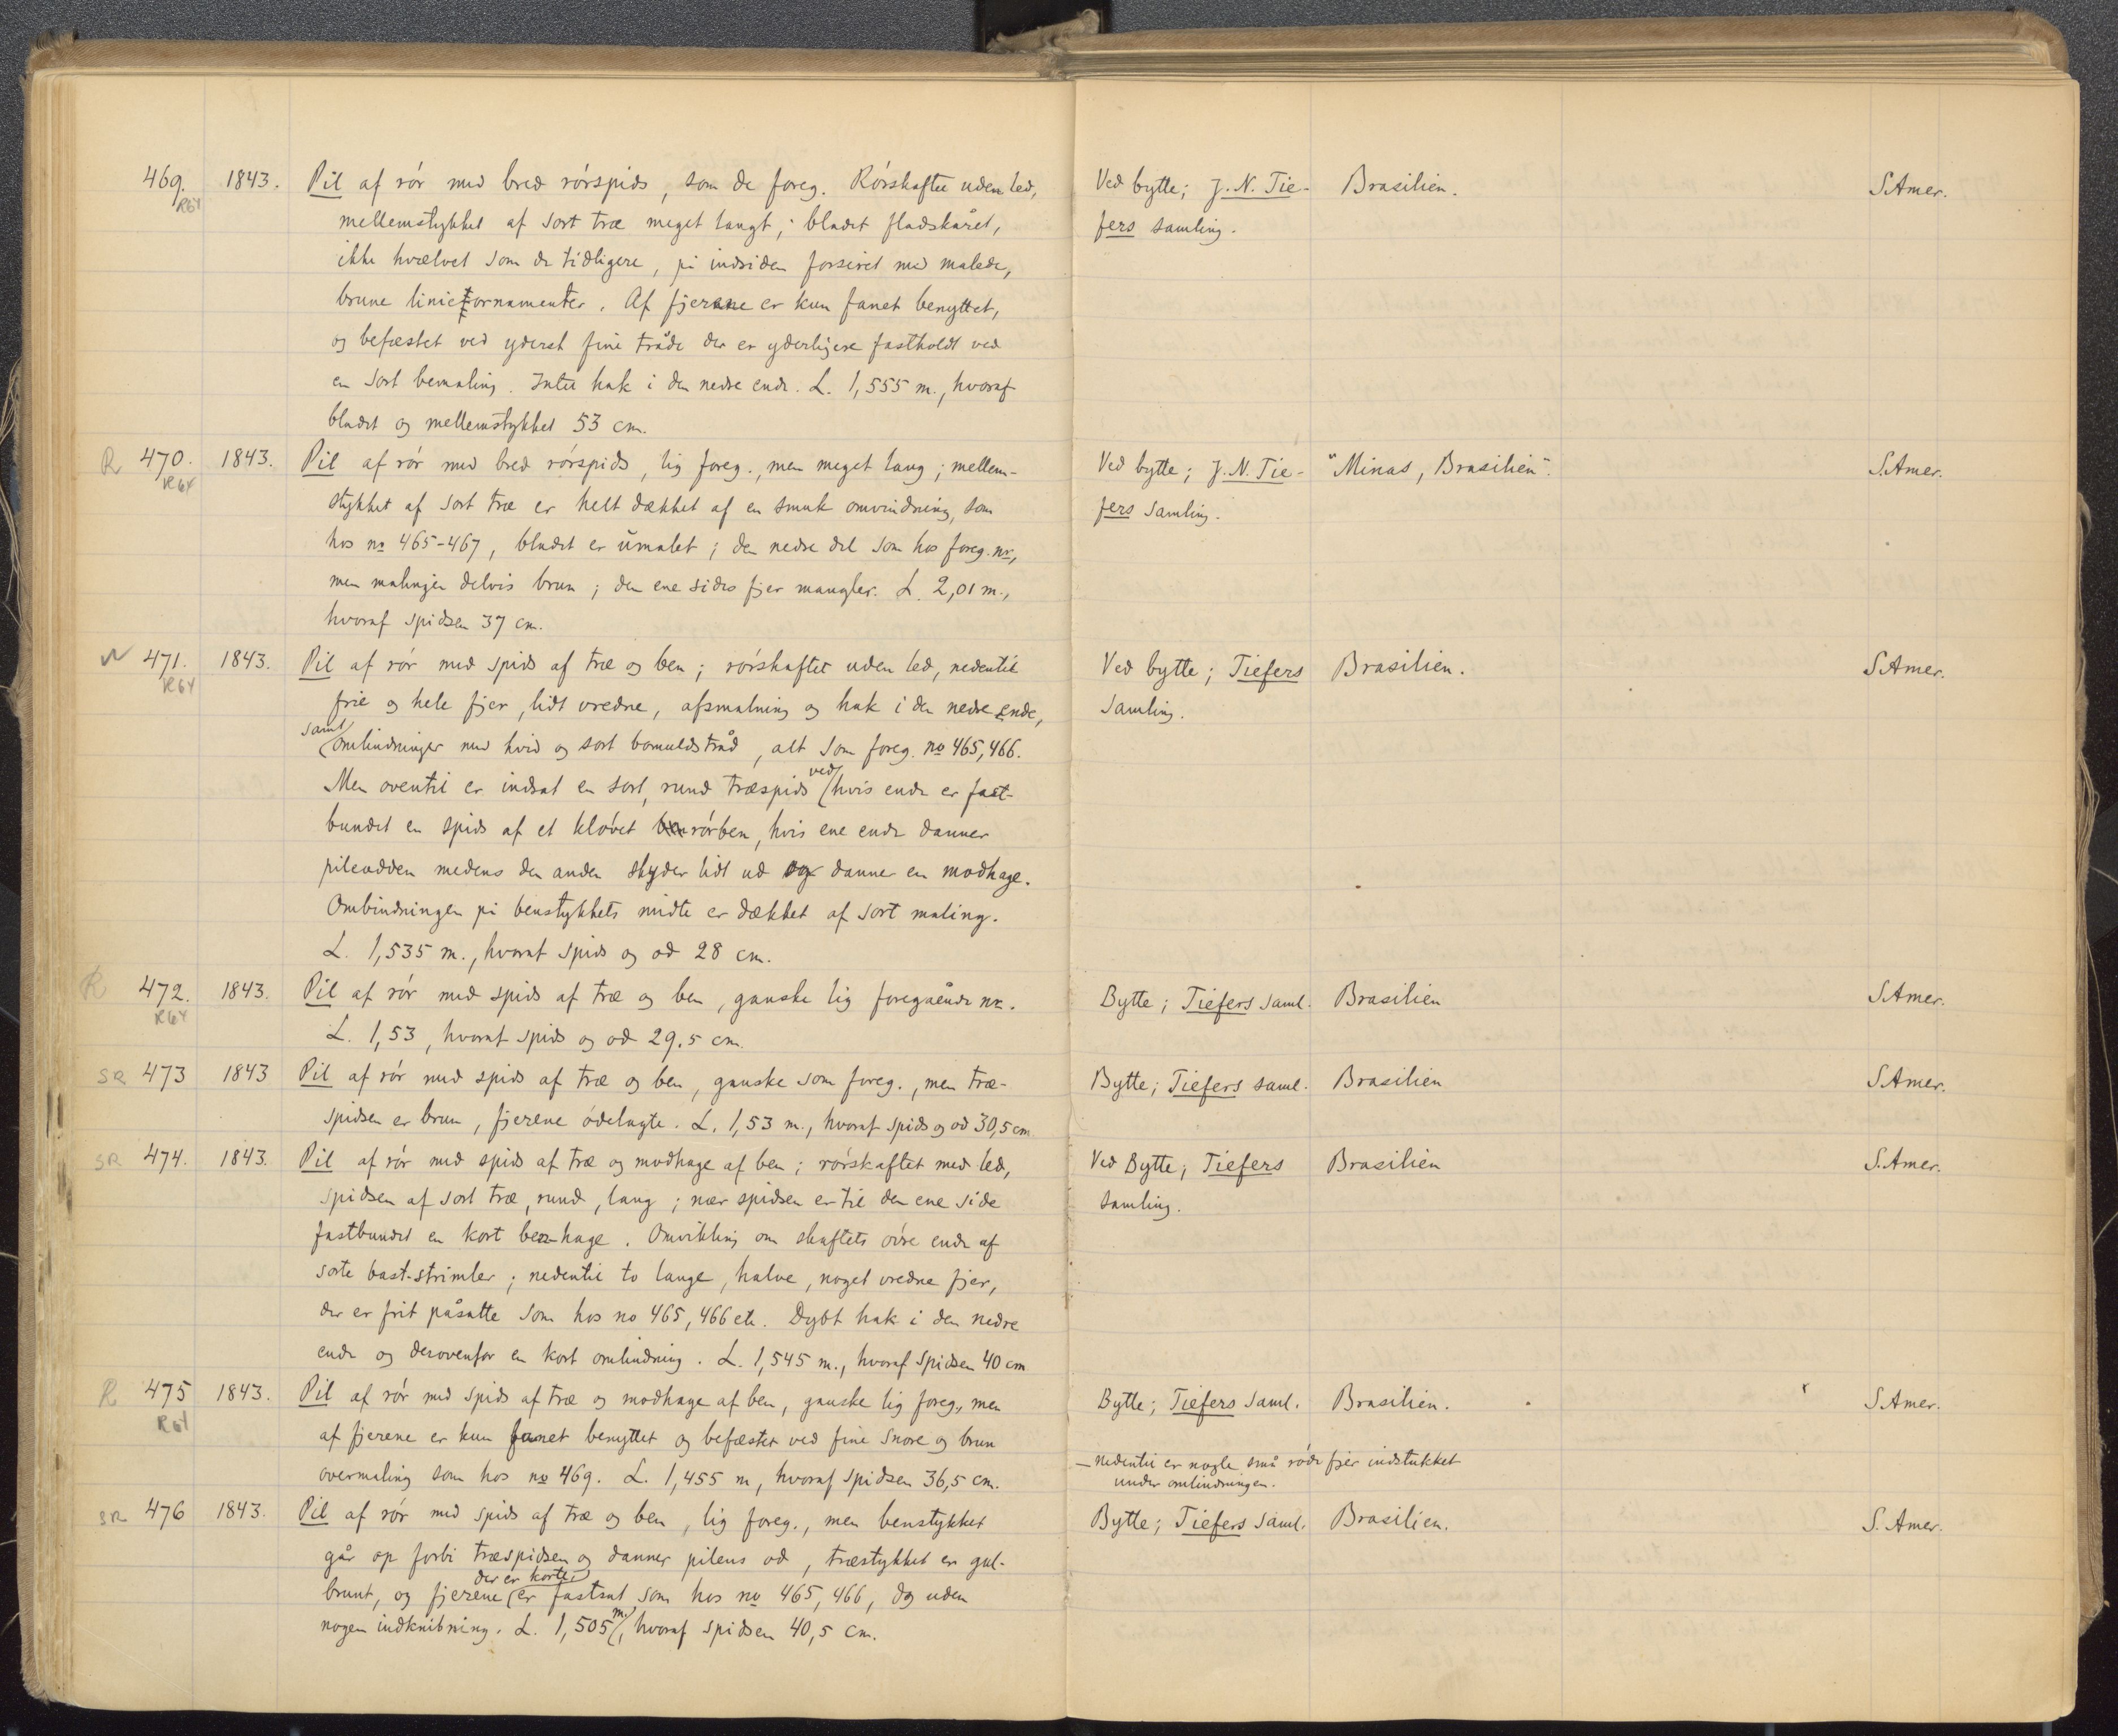 469. 1843. Pil af rór med bred rórspids, som de foreg. Rórskaftet uden led, Ved bytte; J. N. Tie- Brasilien. S.Amer.
R64 mellemstykket af sort træ meget langt; bladet fladskåret, fers samling.
ikke hvælvet som de tidligere, på indsiden forsiret med malede,
brune linieornamenter. Af fjerene er kun fanet benyttet,
og befæstet ved yderst fine tråde der er yderligere fastholdt ved
en sort bemaling. Intet hak i den nedre ende. L. 1,555 m., hvoraf
bladet og mellemstykket 53 cm.
R 470. 1843. Pil af rór med bred rórspids, lig foreg., men meget lang; mellem- Ved bytte; J. N. Tie- "Minas, Brasilien". S.Amer.
R64 stykket af sort træ er helt dækket af en smuk omvindning, som fers samling.
hos no 465-467, bladet er umalet; den nedre del som hos foreg. nr,
men malingen delvis brun; den ene sides fjer mangler. L. 2,01 m.,
hvoraf spidsen 37 cm.
471. 1843. Pil af rór med spids af træ og ben; rórskaftet uden led, nedentil Ved bytte; Tiefers Brasilien. S.Amer.
R64 frie og hele fjer, lidt vredne, afsmalning og hak i den nedre ende, samling.
samt omvindninger med hvid og sort bomuldstråd, alt som foreg. no 465, 466.
Men oventil er indsat en sort, rund træspids ved hvis ende er fast-
bundet en spids af et klóvet rórben, hvis ene ende danner
pileodden medens den anden skyder lidt ud og danner en modhage.
Ombindningen på benstykkets midte er dækket af sort maling.
L. 1,535 m., hvoraf spids og od 28 cm.
R 472. 1843. Pil af rór med spids af træ og ben, ganske lig foregaående nr. Bytte; Tiefers saml. Brasilien S.Amer.
R64 L. 1,53, hvoraf spids og od 29.5 cm.
SR 473 1843 Pil af rór med spids af træ og ben, ganske som foreg., men træ- Bytte; Tiefers saml. Brasilien S.Amer.
spidsen er brun, fjerene ódelagte. L. 1,53 m., hvoraf spids og od 30,5 cm
SR 474. 1843. Pil af rór med spids af træ og modhage af ben; rórskaftet med led, Ved Bytte; Tiefers Brasilien S.Amer.
spidsen af sort træ, rund, lang; nær spidsen er til den ene side samling.
fastbundet en kort ben-hage. Omvikling om skaftets óvre ende af
sorte bast-strimler; nedentil to lange, halve, noget vredne fjer,
der er frit påsatte som hos no 465, 466 etc. Dybt hak i den nedre
ende og derovenfor en kort omvindning. L. 1,545 m., hvoraf spidsen 40 cm
R 475 1843. Pil af rór med spids af træ og modhage af ben, ganske lig foreg., men Bytte; Tiefers saml. Brasilien. S.Amer.
R64 af fjerene er kun fanet benyttet og befæstet ved fine snore og brun
overmaling som hos no 469. L. 1,455 m, hvoraf spidsen 36,5 cm. – nedentil er nogle små róde fjer indstukket
under omvindningen.
SR 476 1843. Pil af rór med spids af træ og ben, lig foreg., men benstykket Bytte; Tiefers saml. Brasilien. S. Amer.
går op forbi træspidsen og danner pilens od, træstykket er gul-
brunt, og fjerene der er korte, er fastsat som hos no 465, 466, dog uden
nogen indknibning. L. 1,505 m., hvoraf spidsen 40,5 cm.